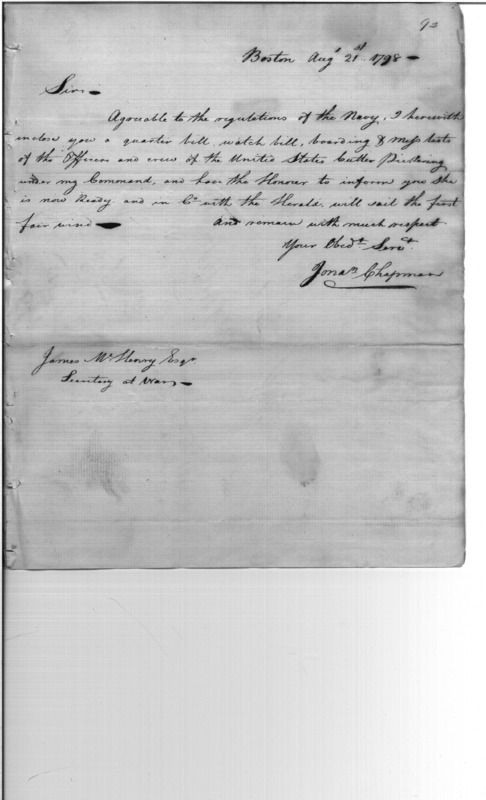 92
Boston Augt 21st 1798
Sir
Agreeable to the regulations of the Navy, I herewith
inclose you a quarter bill, watch bill, boarding & Mess lists
of the Officers and crew of the United States Cutter Pickering
under my Command, and have the Honour to inform you She
is now Ready and in Co with the Herald will sail the first
fair wind And remain with much respect
Your Obedt Servt
Jonan Chapman
James McHenry Esqr
Secretary at War